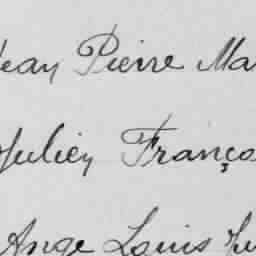 Jean Pierre Ma
Julien Franço
Ange Louis Ju